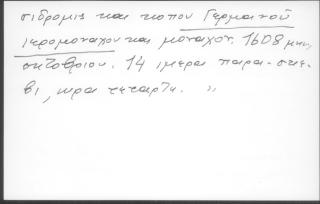 σιδρομις και κοπου Γερμανοῦ
ιερομοναχου και μοναχον. 1608 μην,
οκτοβριου. 14 ιμερα παρα-σκε
βι, ωρα τεταρτι. "